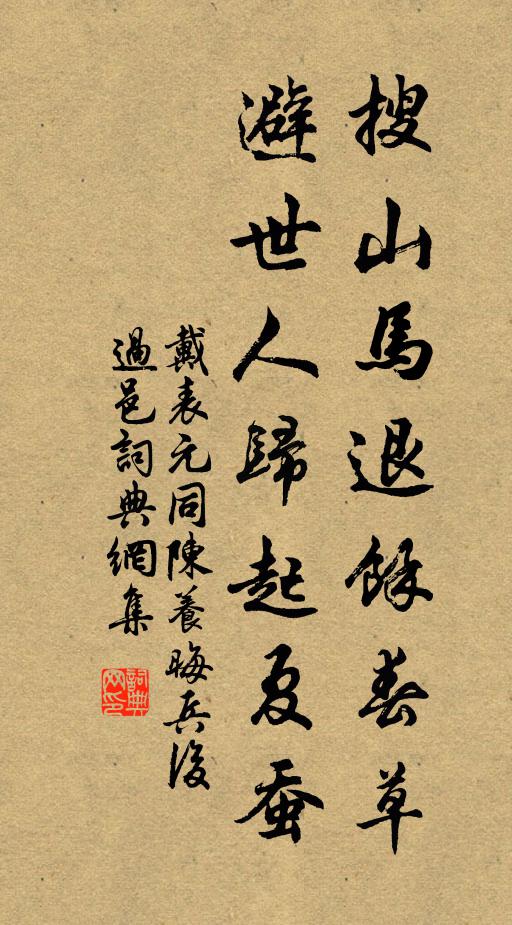 搜山馬退餘春草
避世人歸起夏蚕
戴表元同陳養晦兵後
過邑詞典網集
詞典网印